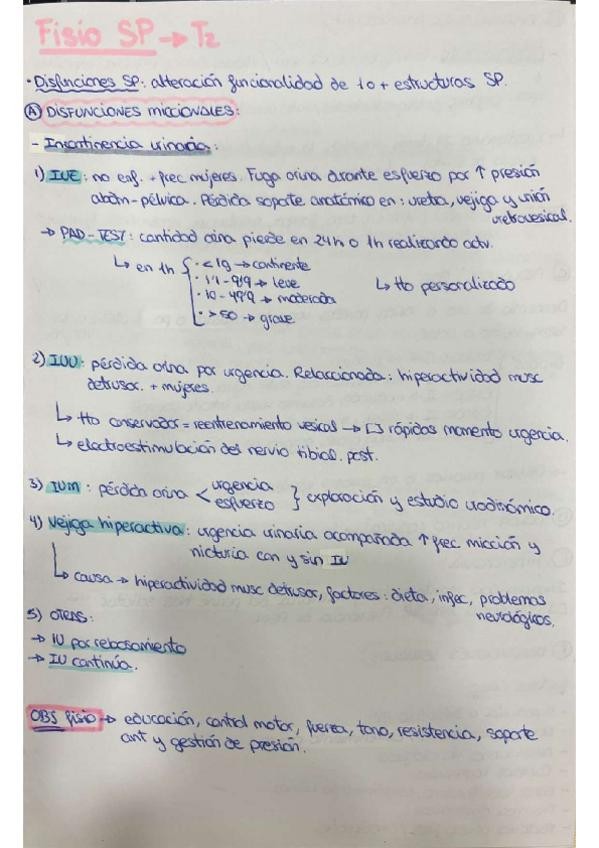 Fisio SP → T2
· Disfunciones SP: alteración funcionalidad de 1 o + estructuras SP.
Ⓐ DISFUNCIONES MICCIONALES:
- Incontinencia urinaria:
1) IUE: no enf. + frec mujeres. Fuga orina durante esfuerzo por ↑ presión
abdm-pélvica. Pérdida soporte anatómico en: uretra, vejiga y unión
uretrovesical.
→ PAD-TEST: cantidad orina pierde en 24h o 1h realizando actv.
↳ en 1h { · < 1g → continente
· 1'1 - 9'9 → leve
↳ tto personalizado
· 10 - 49'9 → moderada
· > 50 → grave
2) IUU: pérdida orina por urgencia. Relaccionada: hiperactividad musc
detrusor. + mujeres.
↳ tto conservador = reentrenamiento vesical → [] rápidas momento urgencia.
↳ electroestimulación del nervio tibial. post.
3) IUM: pérdida orina < urgencia
esfuerzo } exploración y estudio urodinámico.
4) Vejiga hiperactiva: urgencia urinaria acompañada ↑ frec micción y
nicturia con y sin IU
↳ causa → hiperactividad musc detrusor, factores: dieta, infec, problemas
neurológicos.
5) OTRAS:
→ IU por rebosamiento
→ IU continúa.
OBS fisio → educación, control motor, fuerza, tono, resistencia, soporte
ant y gestión de presión.